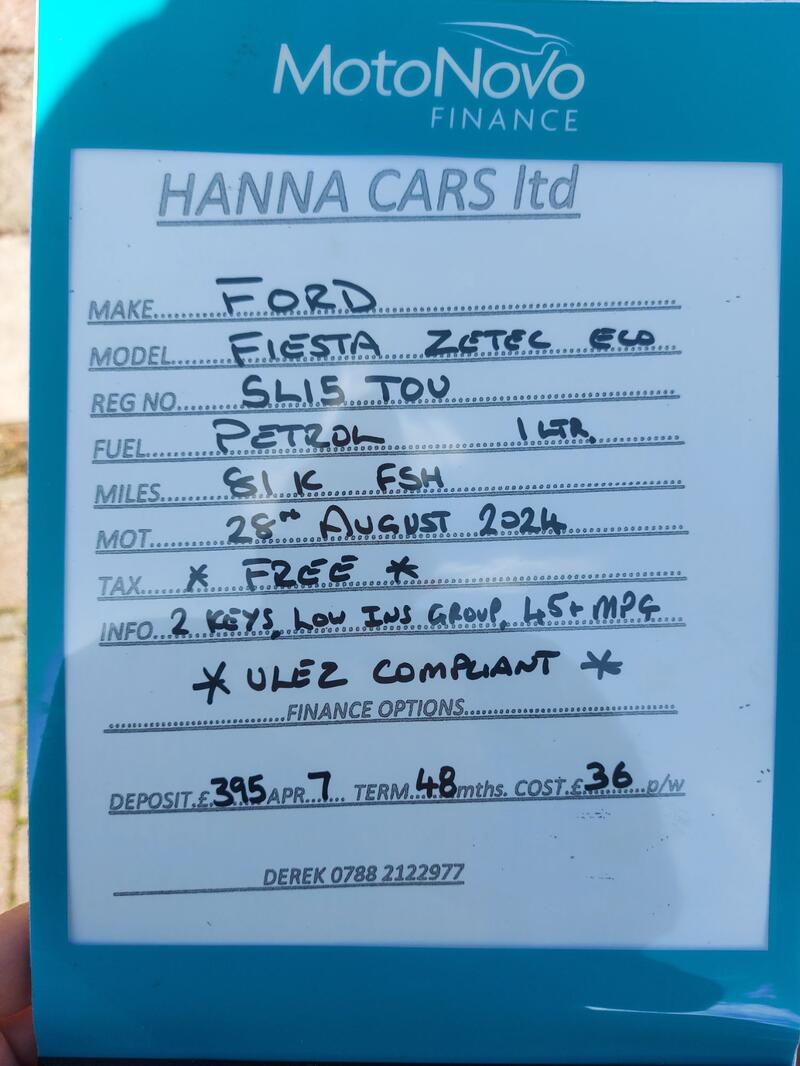 MotoNovo
FINANCE
HANNA CARS ltd
MAKE......FORD......
MODEL......FIESTA ZETEC ECO
REG NO......SL15 TOU......
FUEL......PETROL 1 LTR.
MILES......81K FSH......
MOT......28TH AUGUST 2024......
TAX......* FREE *......
INFO...2 KEYS, LOW INS GROUP, 45+ MPG
* ULEZ COMPLIANT *
......FINANCE OPTIONS......
DEPOSIT.£395 APR..7... TERM..48mths. COST.£36...p/w
DEREK 0788 2122977